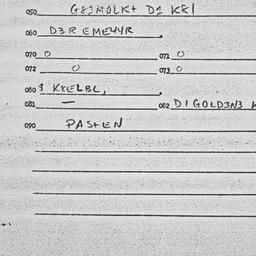 050 G81MOLK+ D1 K81
060 D3R EMEUYR
070 O 071 O
072 O 073 O
080 1 KXELBL,
081 — 082 D1 GOLD3N3 K
090 PASTEN